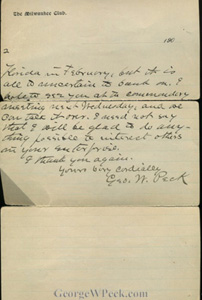 The Milwaukee Club.
190
2
Florida in February, but it is
all to uncertain to bank on. I
hope to see you at the commandery
meeting next Wednesday, and we
can talk it over. I need not say
that I will be glad to do any-
thing possible to interest others
in your enterprise.
I thank you again.
Yours very cordially
Geo. W. Peck
GeorgeWPeck.com